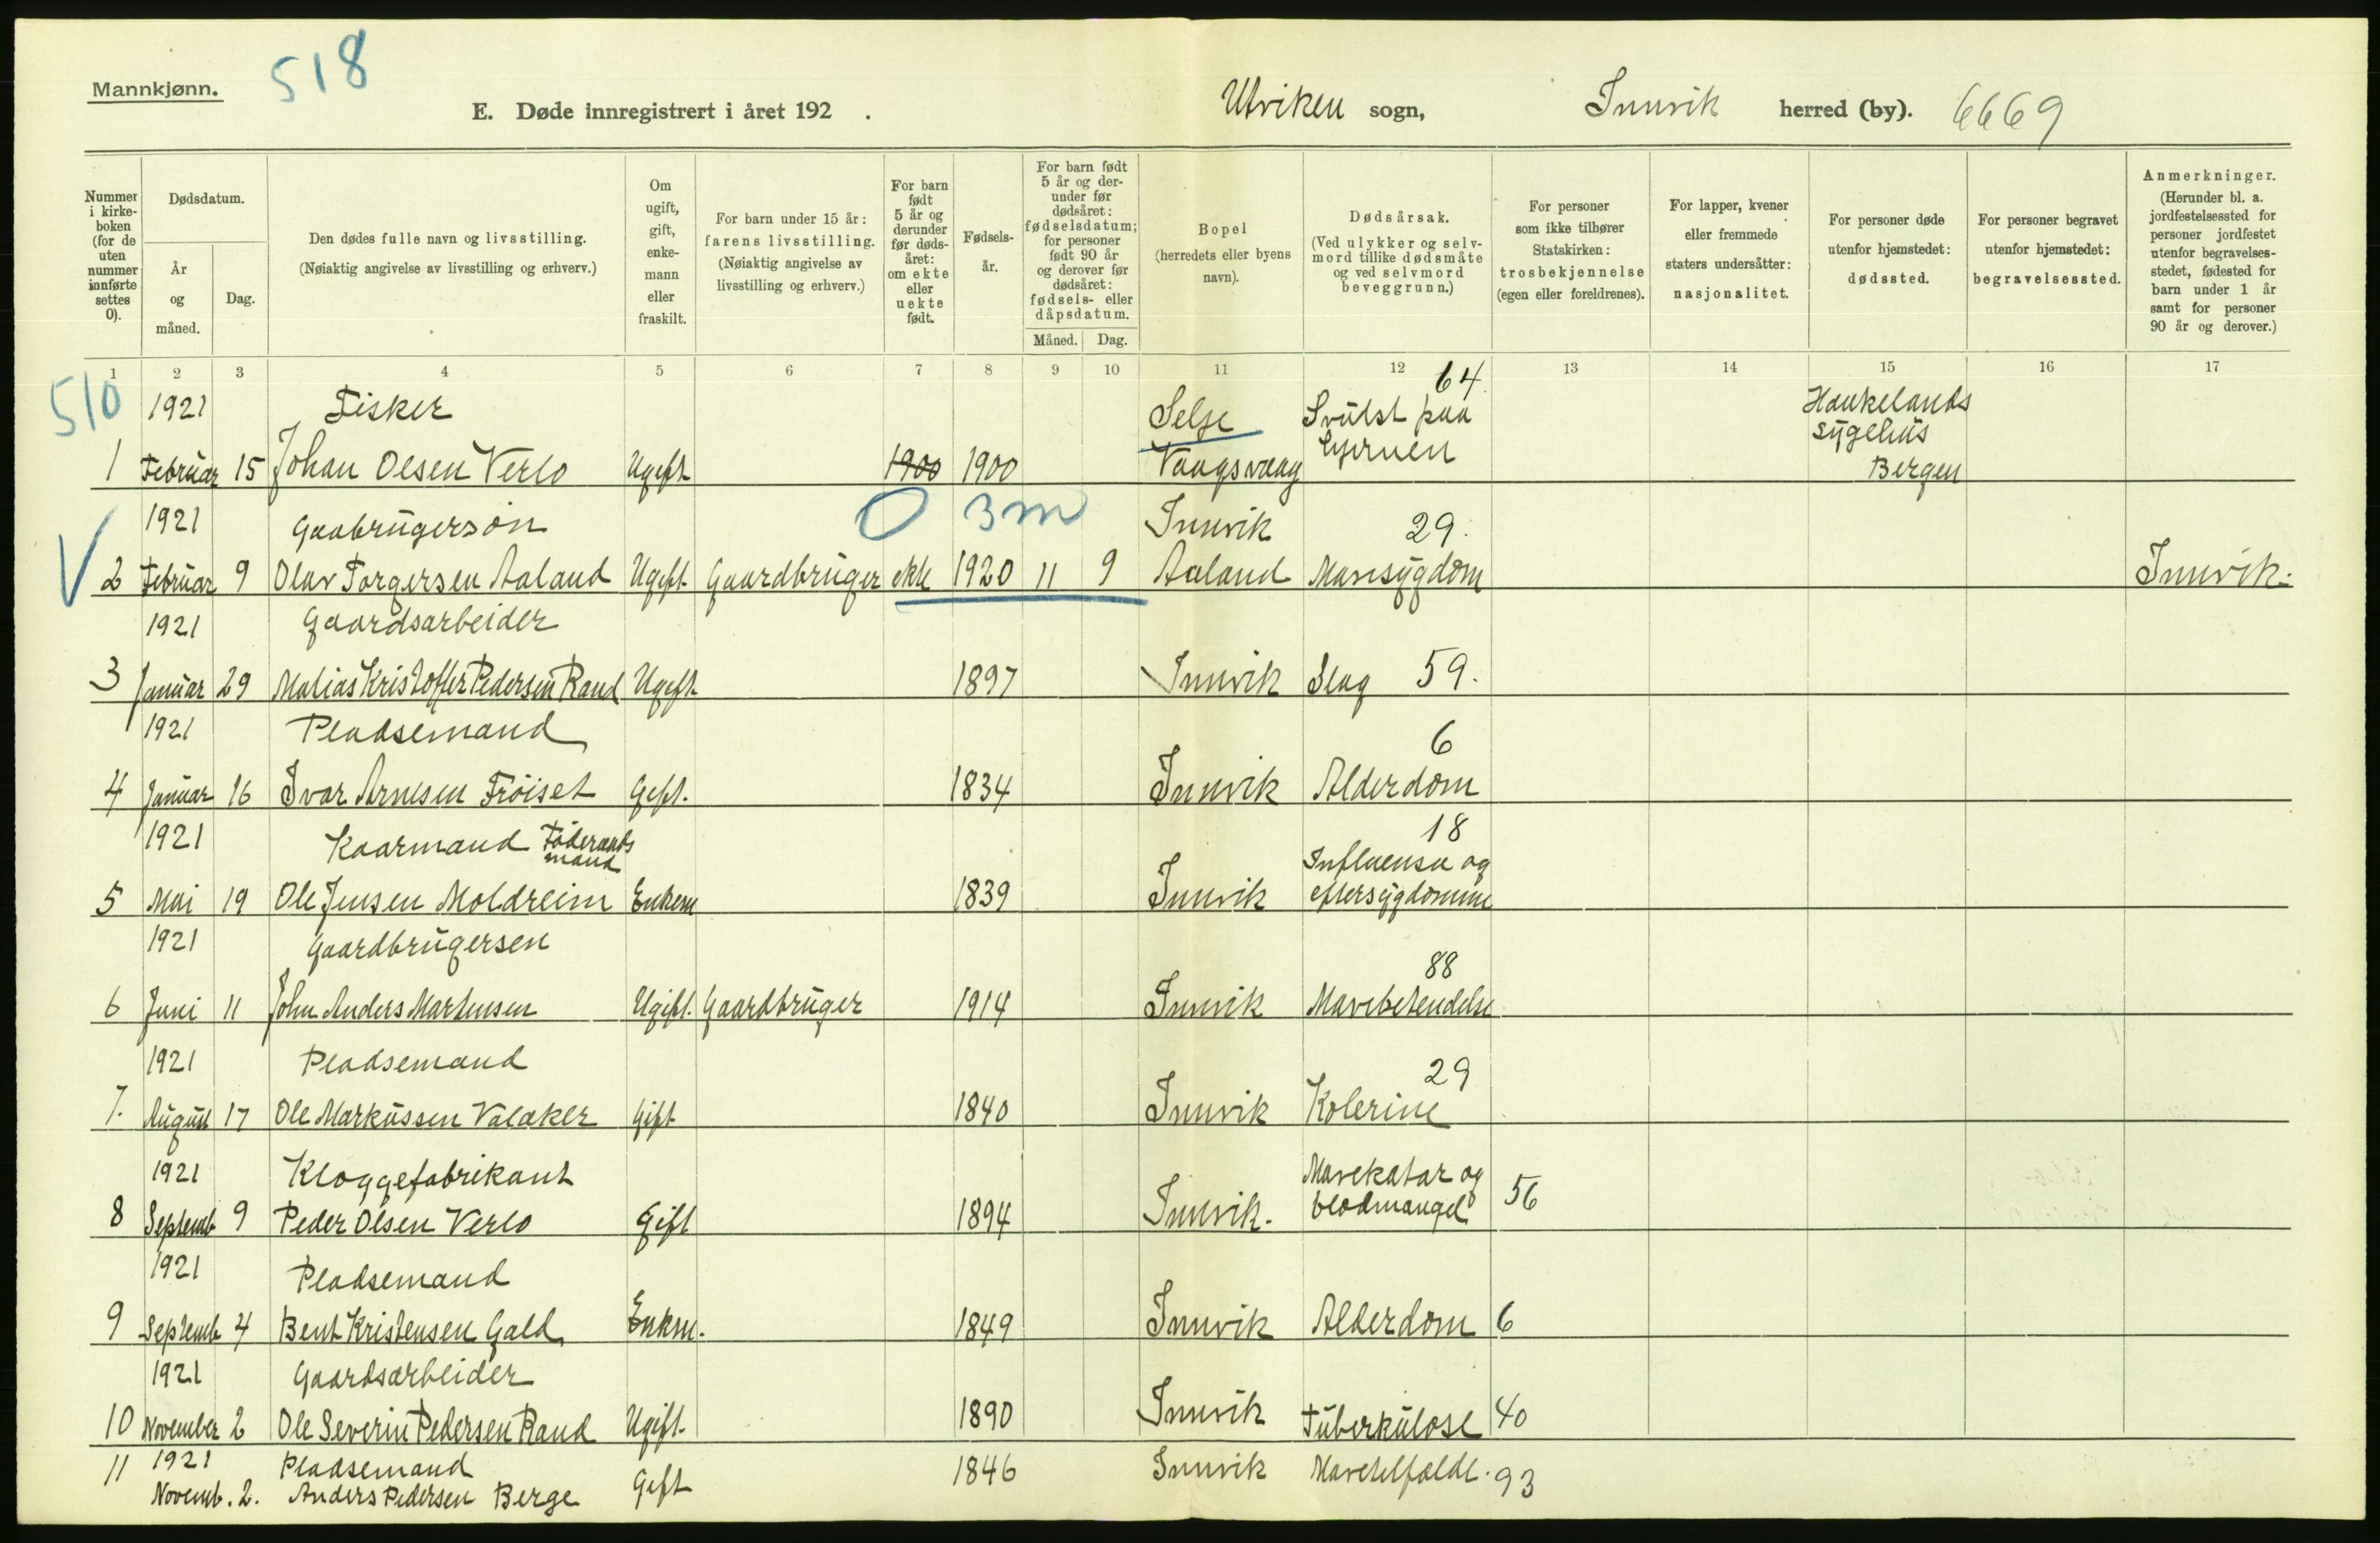 Mannkjønn.
518
E. Døde innregistrert i året 192 .
Utviken sogn,
Innvik herred (by). 6669
Nummer i kirke-boken (for de uten nummer innførte settes 0).
Dødsdatum.
År og måned.
Dag.
Den dødes fulle navn og livsstilling.
(Nøiaktig angivelse av livsstilling og erhverv.)
Om ugift, gift, enke-mann eller fraskilt.
For barn under 15 år: farens livsstilling.
(Nøiaktig angivelse av livsstilling og erhverv.)
For barn født 5 år og derunder før døds-året: om ekte eller uekte født.
Fødsels-år.
For barn født 5 år og der-under før dødsåret: fødselsdatum; for personer født 90 år og derover før dødsåret: fødsels- eller dåpsdatum.
Måned. Dag.
Bopel
(herredets eller byens navn).
Dødsårsak.
(Ved ulykker og selv-mord tillike dødsmåte og ved selvmord beveggrunn.)
For personer som ikke tilhører Statskirken: trosbekjennelse (egen eller foreldrenes).
For lapper, kvener eller fremmede staters undersåtter: nasjonalitet.
For personer døde utenfor hjemstedet: dødssted.
For personer begravet utenfor hjemstedet: begravelsessted.
Anmerkninger.
(Herunder bl. a. jordfestelsessted for personer jordfestet utenfor begravelses-stedet, fødested for barn under 1 år samt for personer 90 år og derover.)
1 2 3 4 5 6 7 8 9 10 11 12 13 14 15 16 17
510 1921 Fisker Selje Svulst paa 64 Haukelands
sygehus
1 Februar 15 Johan Olsen Verlo Ugift 1900 1900 Vaagsvaag hjernen Bergen
1921 Gaabrugersøn 0 3m Innvik 29.
V 2 Februar 9 Olav Torgersen Aaland Ugift Gaardbruger ekte 1920 11 9 Aaland Mavesygdom Innvik.
1921 Gaardsarbeider
3 Januar 29 Matias Kristoffer Pedersen Rand Ugift 1897 Innvik Slag 59.
1921 Pladsemand 6
4 Januar 16 Ivar Arnesen Frøiset Gift. 1834 Innvik Alderdom
1921 Kaarmand Føderaads mand 18
Influensa og
5 Mai 19 Ole Jensen Moldreim Enkem 1839 Innvik eftersygdomme
1921 Gaardbrugersen 88
6 Juni 11 John Anders Martensen Ugift. Gaardbruger 1914 Innvik Mavebetendelse
1921 Pladsemand 29
7. August 17 Ole Markussen Valaker Gift 1840 Innvik Kolerine
1921 Kloggefabrikant Mavekatar og
8 Septemb 9 Peder Olsen Verlo Gift 1894 Innvik. blodmangel 56
1921 Pladsemand
9 Septemb 4 Bent Kristensen Gald Enkm. 1849 Innvik Alderdom 6
1921 Gaardsarbeider
10 November 2 Ole Severin Pedersen Rand Ugift. 1890 Innvik Tuberkulose 40
11 1921 Pladsemand 1846 Innvik 93
Novemb. 2. Anders Pedersen Berge Gift